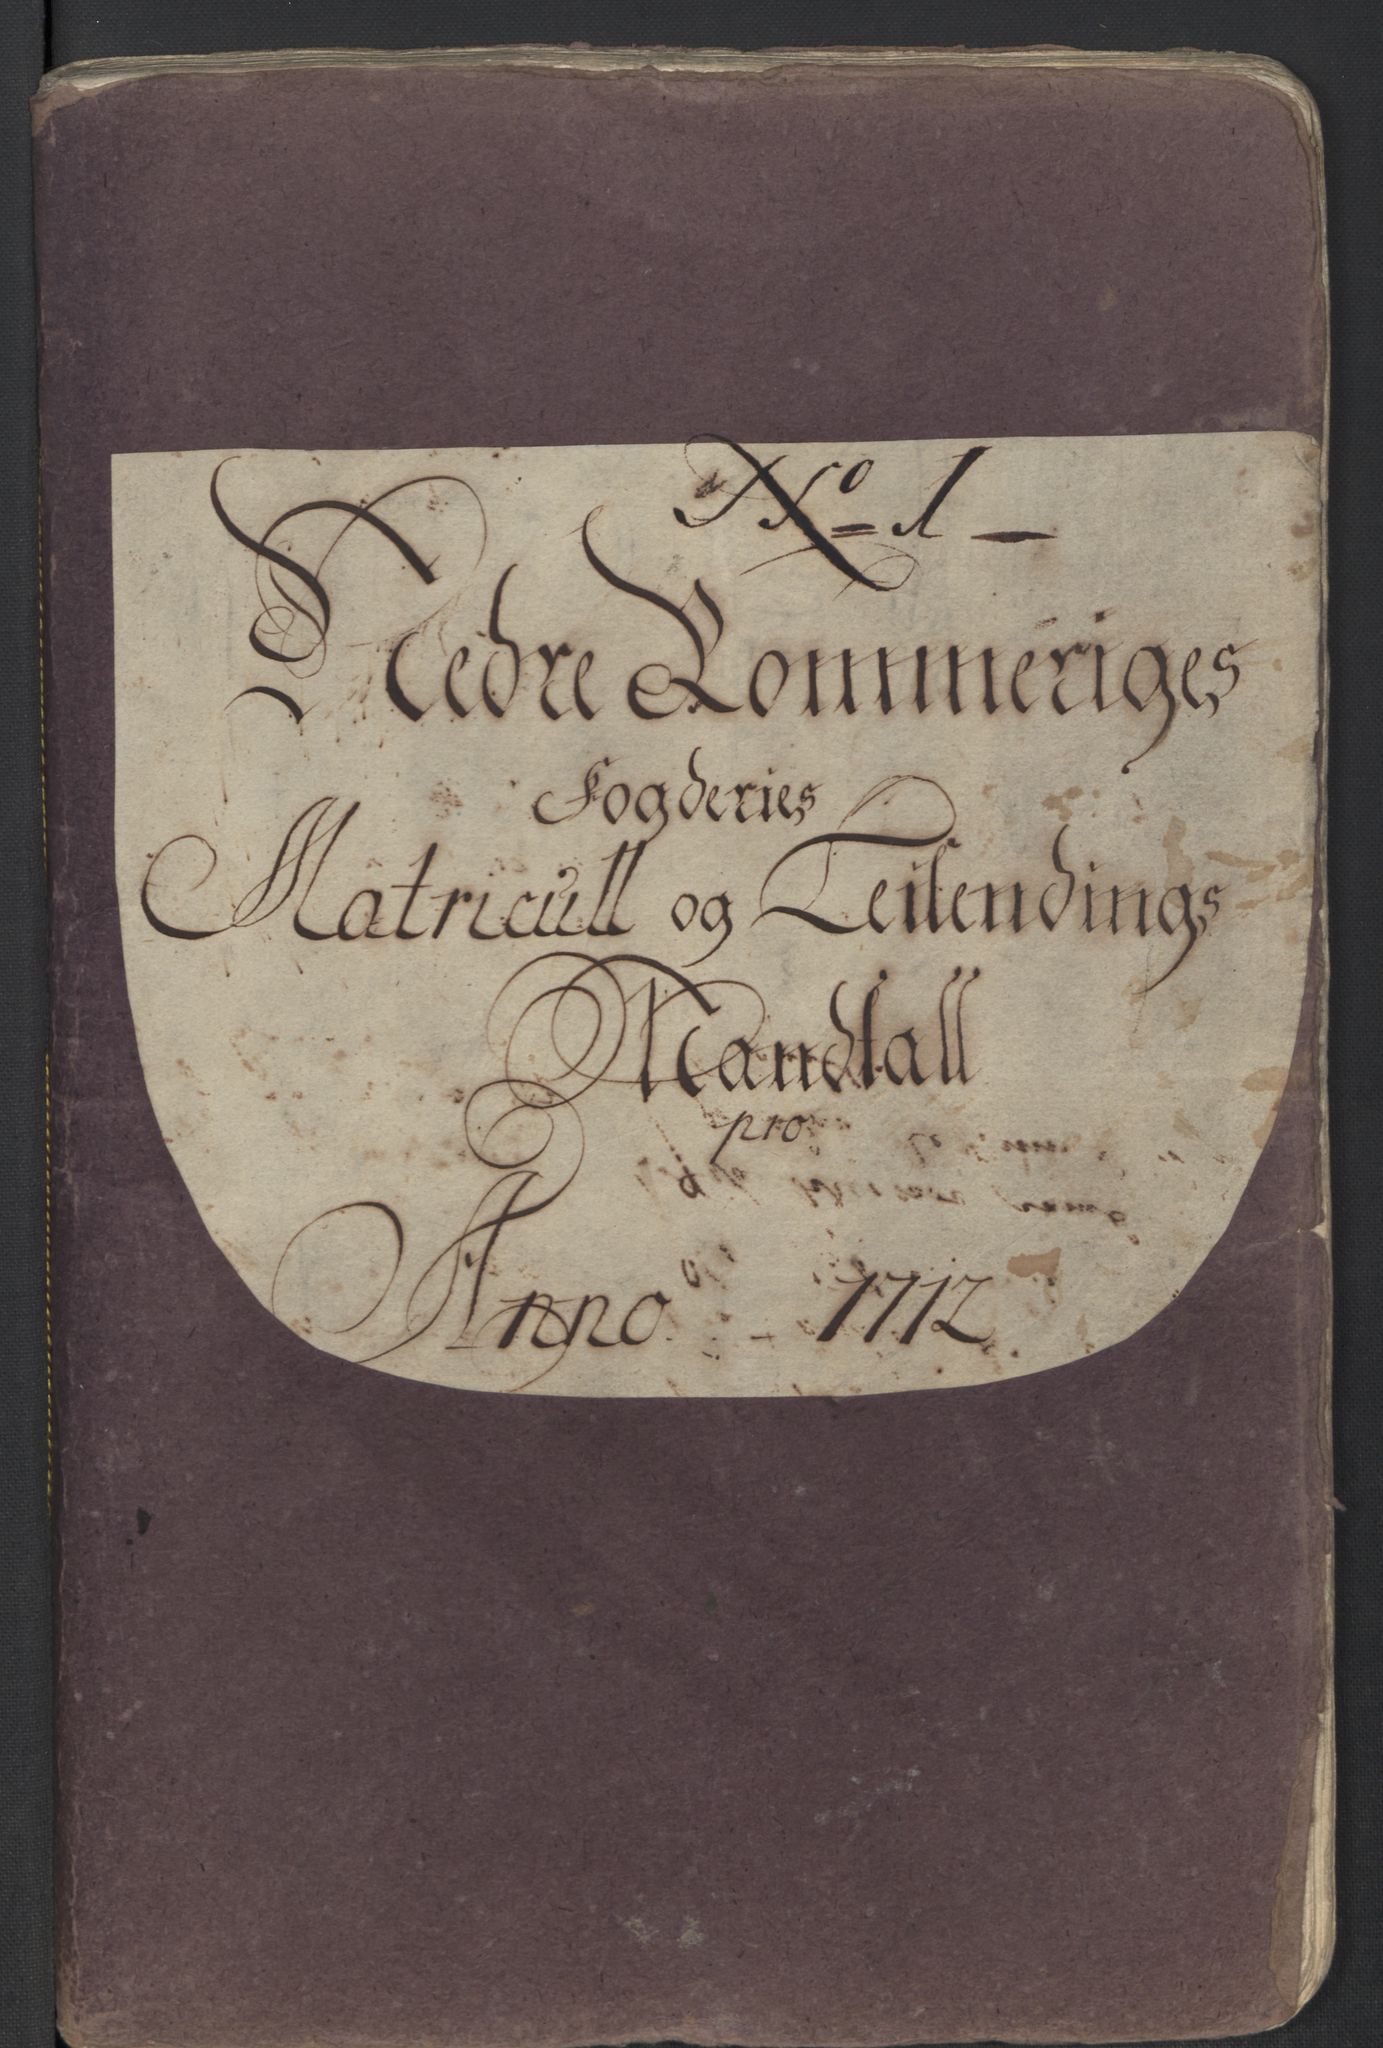 No 1
Nedre Rommeriges
Fogderies
Matricull og Leilendings
Mandtall
pro
Anno 1712